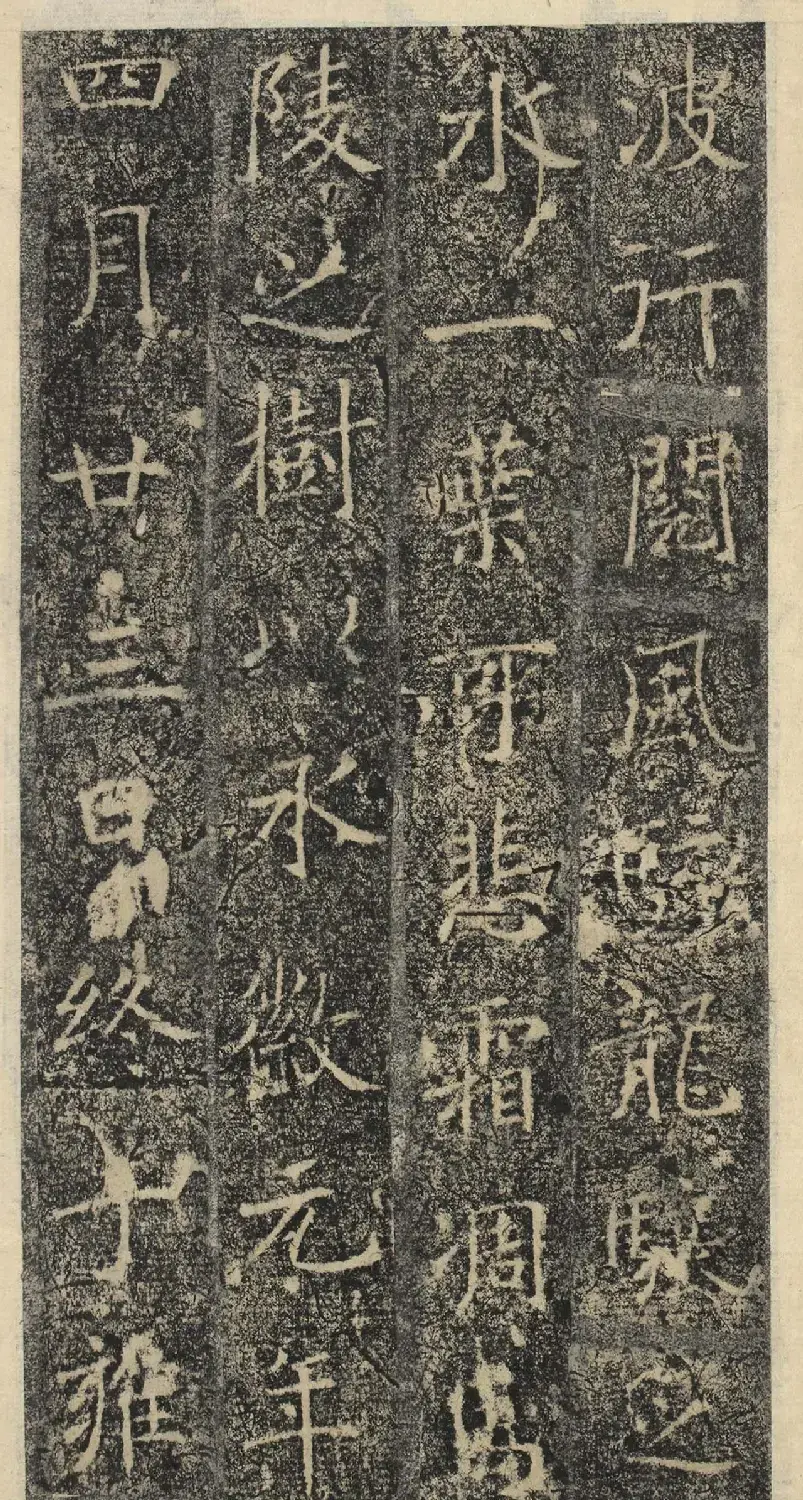 波行閱風龍之
水一葉可悲霜凋馬
陵之樹以永徽元年
四月廿三日終于雍